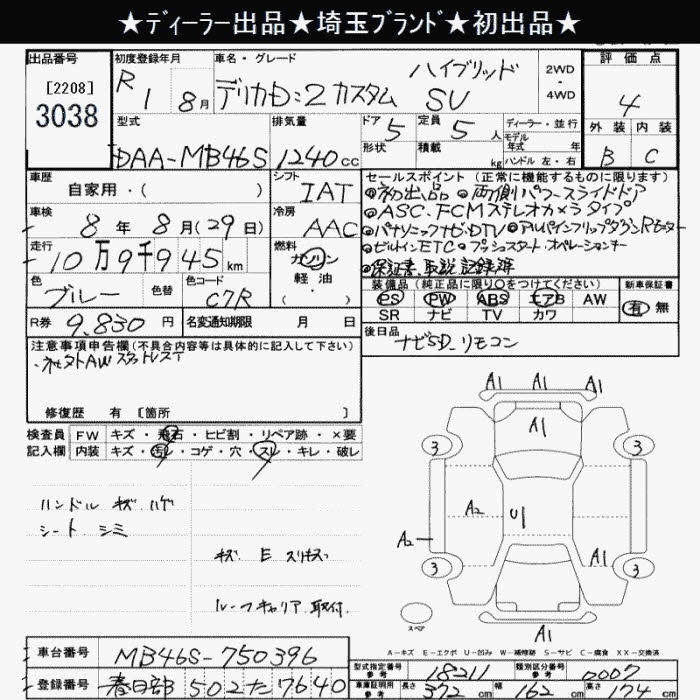 ★ディーラー出品★埼玉ブランド★初出品★
出品番号
[2208]
3038
初度登録年月
R 1 年 8月
車名・グレード
デリカD:2 カスタム
ハイブリッド
SV
2WD
・
4WD
評価点
4
外装 内装
B C
型式
DAA-MB46S
排気量
1240cc
ドア 5
形状
定員 5人
積載 kg
ディーラー・並行
モデル
年式 年
ハンドル 左・右
車歴
自家用・( )
シフト
IAT
車検
8年 8月(29日)
冷房
AAC
走行
10万9千945km
燃料
ガソリン
軽油
・( )
色
ブルー
色替
色コード
C7R
R券 9,830円
名変通知期限 月 日
セールスポイント(正常に機能するものに限ります)
◎初出品 ◎両側パワースライドドア
◎ASC、FCMステレオカメラタイプ
◎パナソニックナビ、DTV ◎アルパインフリップダウンRモニター
◎ビルトインETC ◎プッシュスタート・オペレーションキー
◎保証書、取説、記録簿
装備品(純正品に限り○をつけてください)
PS PW ABS エアB AW
SR ナビ TV カワ
新車保証書
有 無
後日品
ナビSD、リモコン
注意事項申告欄(不具合内容等は具体的に記入して下さい)
・社外AWスタットレスT
修復歴 有 [箇所 ]
検査員
記入欄
FW キズ・飛石・ヒビ割・リペア跡・×要
内装 キズ・汚れ・コゲ・穴・スレ・キレ・破レ
ハンドル キズ ハゲ
シート シミ
キズ E スリキズ
ルーフキャリア 取付
A1 A1 A1
A1
3 3
A2 U1
A2
A1
3 3
A1
スペア
A-キズ E-エクボ U-凹み W-補修跡 S-サビ C-腐食 XX-交換済
車台番号 MB46S-750396
登録番号 春日部 502 た 7640
型式指定番号
参考
18211
類別区分番号
参考
0007
車庫証明用
参考
長さ 372cm 幅 162cm 高さ 174cm